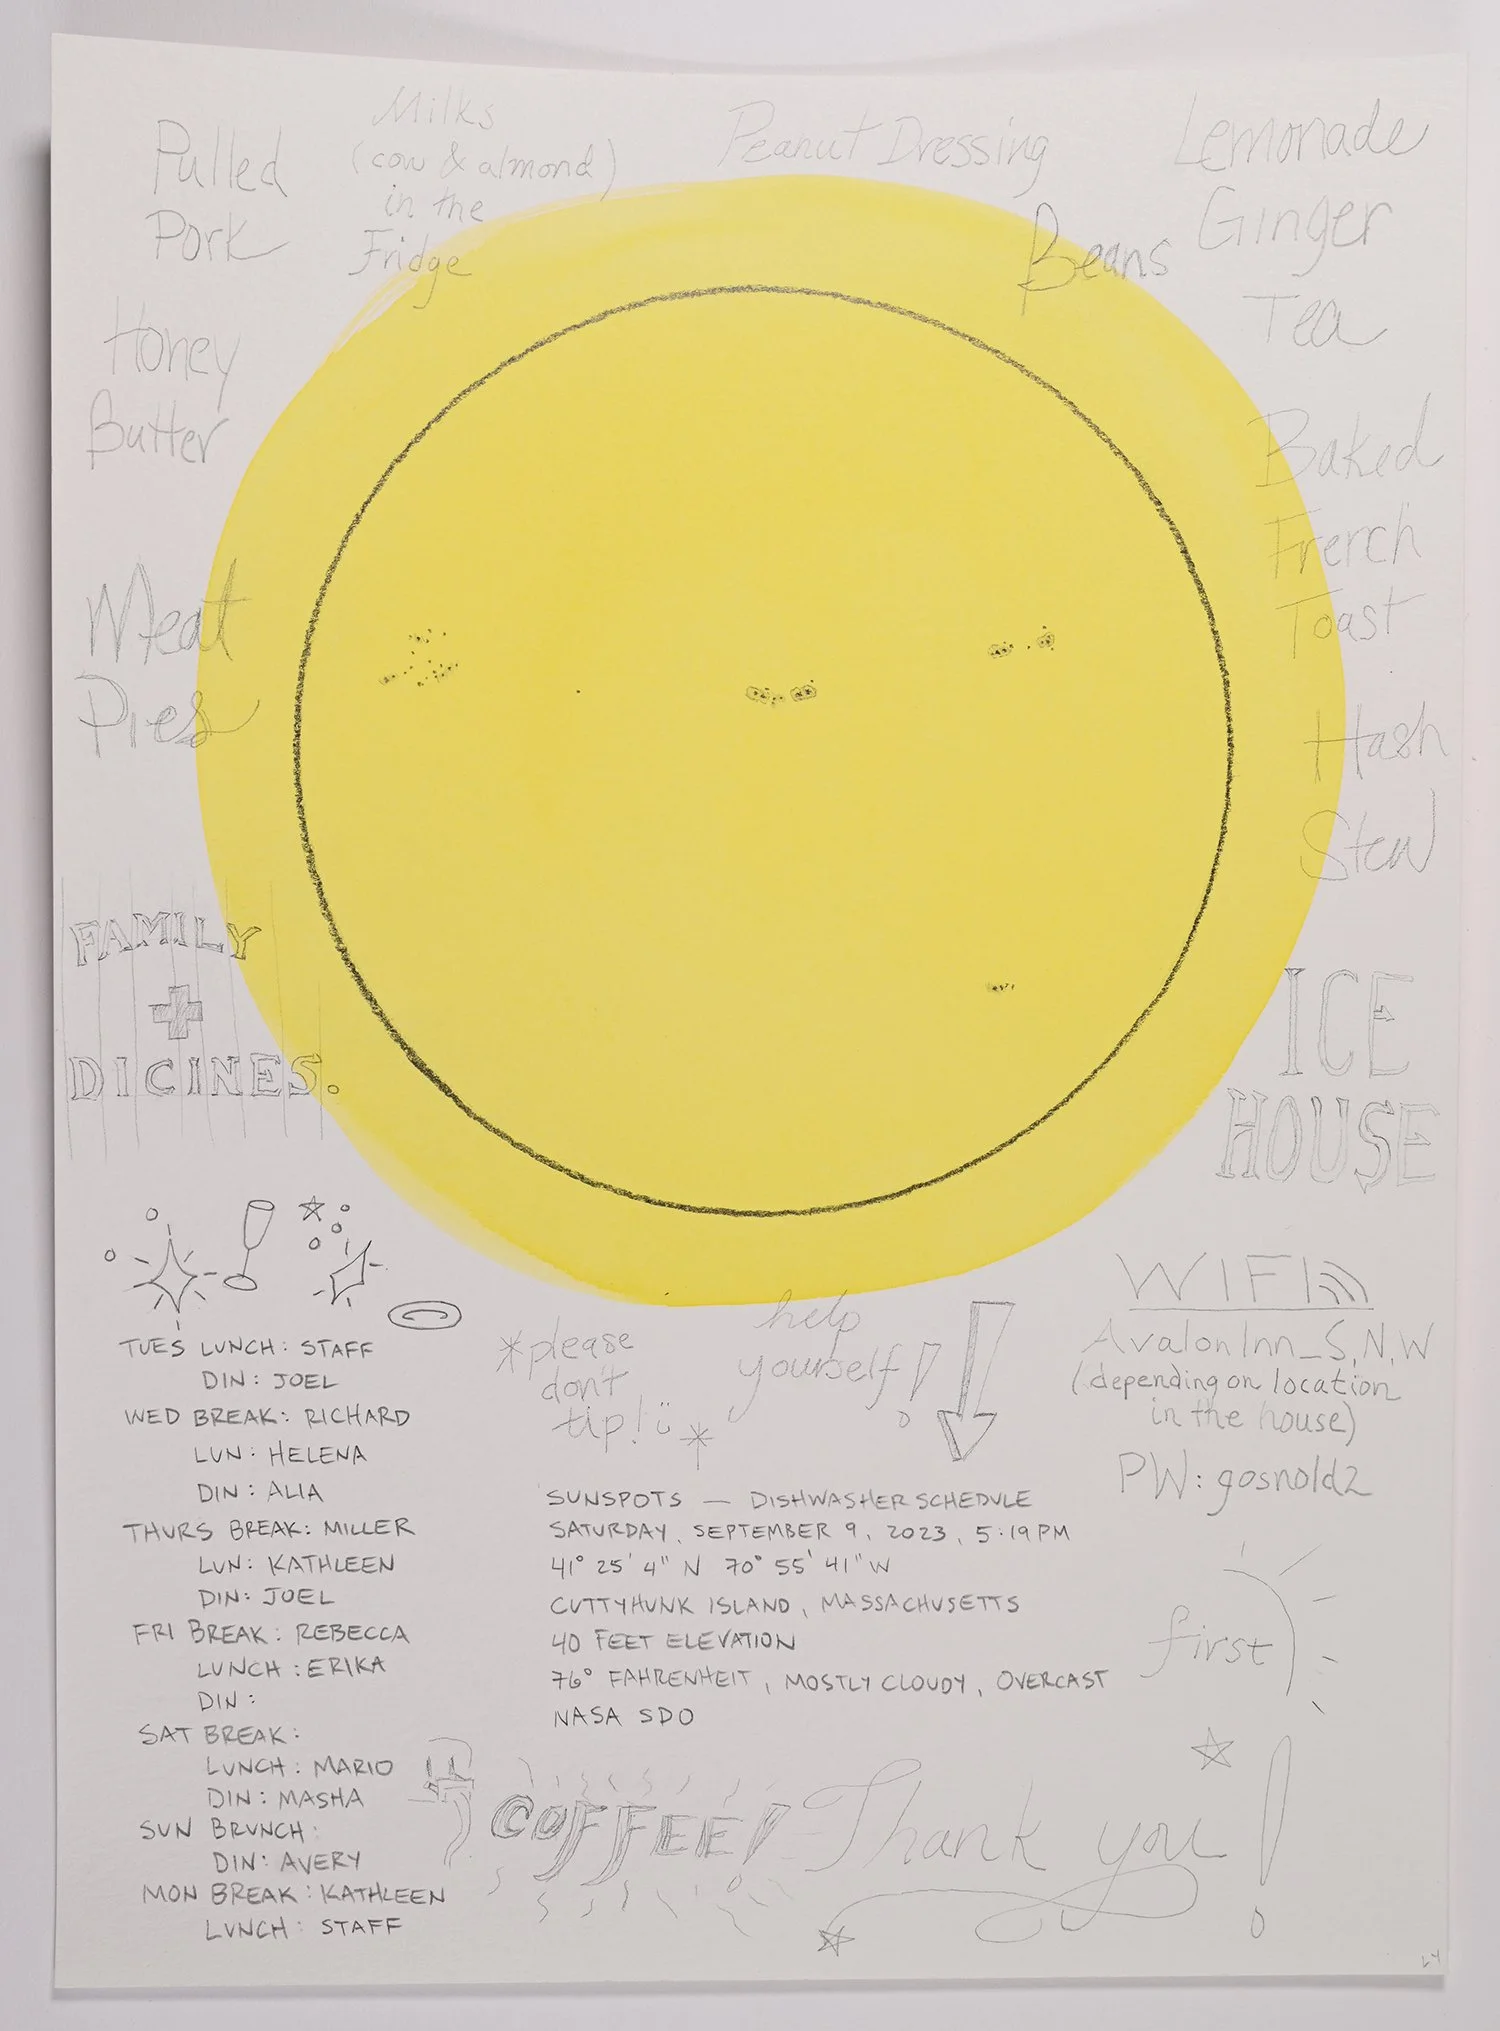 Milks
(cow & almond)
in the
Fridge
Pulled
Pork
Peanut Dressing
Lemonade
Ginger
Tea
Beans
Honey
Butter
Baked
French
Toast
Meat
Pies
Hash
Stew
FAMILY
+
DICINES.
ICE
HOUSE
WIFI
AvalonInn_S,N,W
(depending on location
in the house)
PW: gosnold2
*please
don't
tip! *
help
yourself!
TUES LUNCH: STAFF
DIN: JOEL
WED BREAK: RICHARD
LUN: HELENA
DIN: ALIA
THURS BREAK: MILLER
LUN: KATHLEEN
DIN: JOEL
FRI BREAK: REBECCA
LUNCH: ERIKA
DIN:
SAT BREAK:
LUNCH: MARIO
DIN: MASHA
SUN BRUNCH:
DIN: AVERY
MON BREAK: KATHLEEN
LUNCH: STAFF
SUNSPOTS — DISHWASHER SCHEDULE
SATURDAY, SEPTEMBER 9, 2023, 5:19PM
41° 25' 4" N 70° 55' 41" W
CUTTYHUNK ISLAND, MASSACHUSETTS
40 FEET ELEVATION
76° FAHRENHEIT, MOSTLY CLOUDY, OVERCAST
NASA SDO
first
COFFEE!
Thank you!
LY